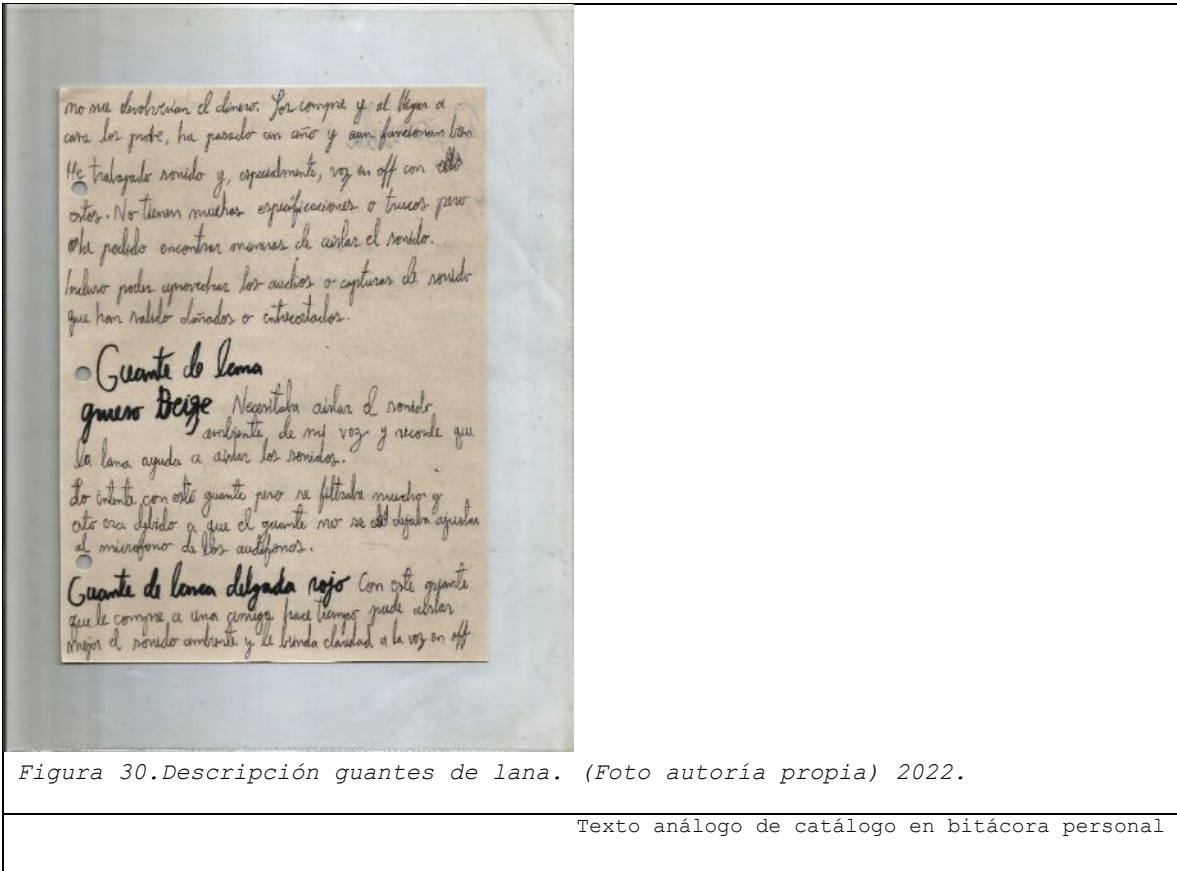 no me devolverian el dinero. Los compre y al llegar a
casa los probe, ha pasado un año y aun funcionan bien.
He trabajado sonido y, especialmente, voz en off con
estos. No tienen muchas especificaciones o trucos pero
he podido encontrar maneras de aislar el sonido.
Incluso poder aprovechar los audios o capturas de sonido
que han salido dañados o entrecortados.
Guante de lana
grueso Beige Necesitaba aislar el sonido
ambiente, de mi voz y recorde que
la lana ayuda a aislar los sonidos.
Lo intente con este guante pero se filtraba mucho y
esto era debido a que el guante no se dejaba ajustar
al microfono de los audifonos.
Guante de lana delgada rojo Con este guante
que le compre a una amiga hace tiempo pude aislar
mejor el sonido ambiente y le brinda claridad a la voz en off
Figura 30.Descripción guantes de lana. (Foto autoría propia) 2022.
Texto análogo de catálogo en bitácora personal